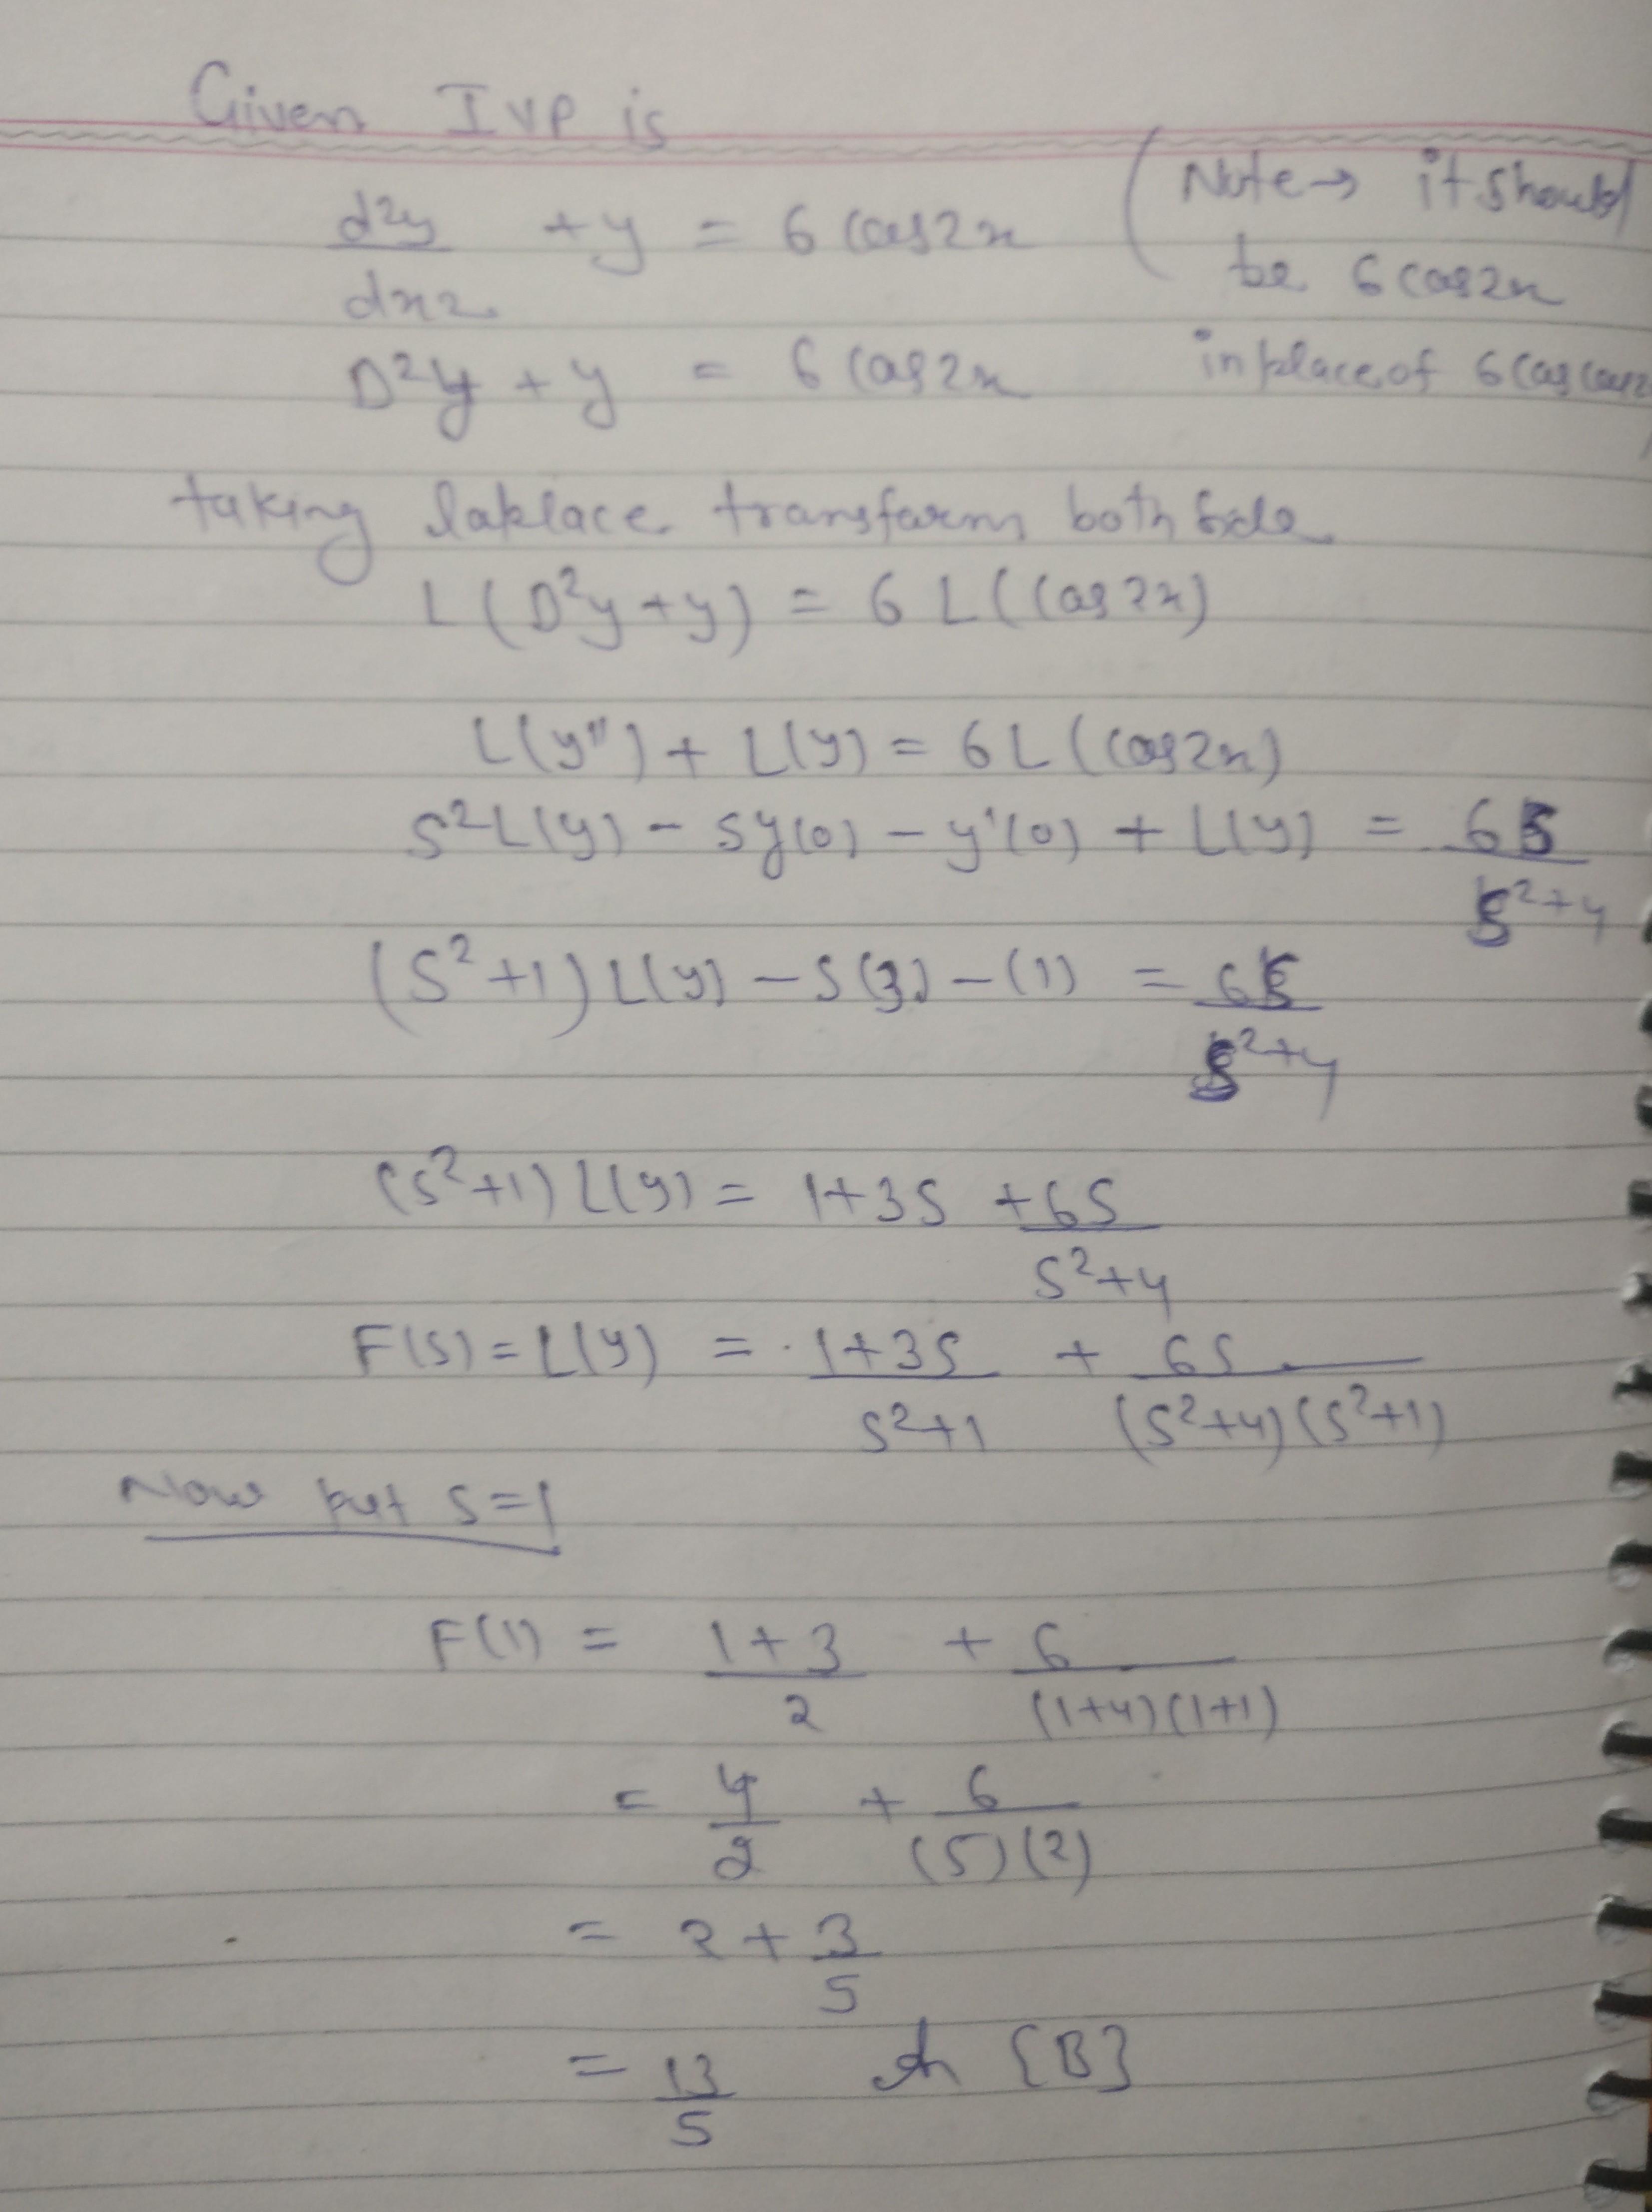 Given IVP is
d²y/dx² + y = 6 cos2x (Note → it should
be 6 cos2x
D²y + y = 6 cos2x in place of 6 cos
taking laplace transform both side
L(D²y+y) = 6 L(cos2x)
L(y") + L(y) = 6L(cos2x)
S²L(y) - Sy(0) - y'(0) + L(y) = 6S/S²+4
(S²+1) L(y) - S(3) - (1) = 6S/S²+4
(S²+1) L(y) = 1+3S + 6S/S²+4
F(S) = L(y) = 1+3S/S²+1 + 6S/(S²+4)(S²+1)
Now put S=1
F(1) = 1+3/2 + 6/(1+4)(1+1)
= 4/2 + 6/(5)(2)
= 2 + 3/5
= 13/5 {B}